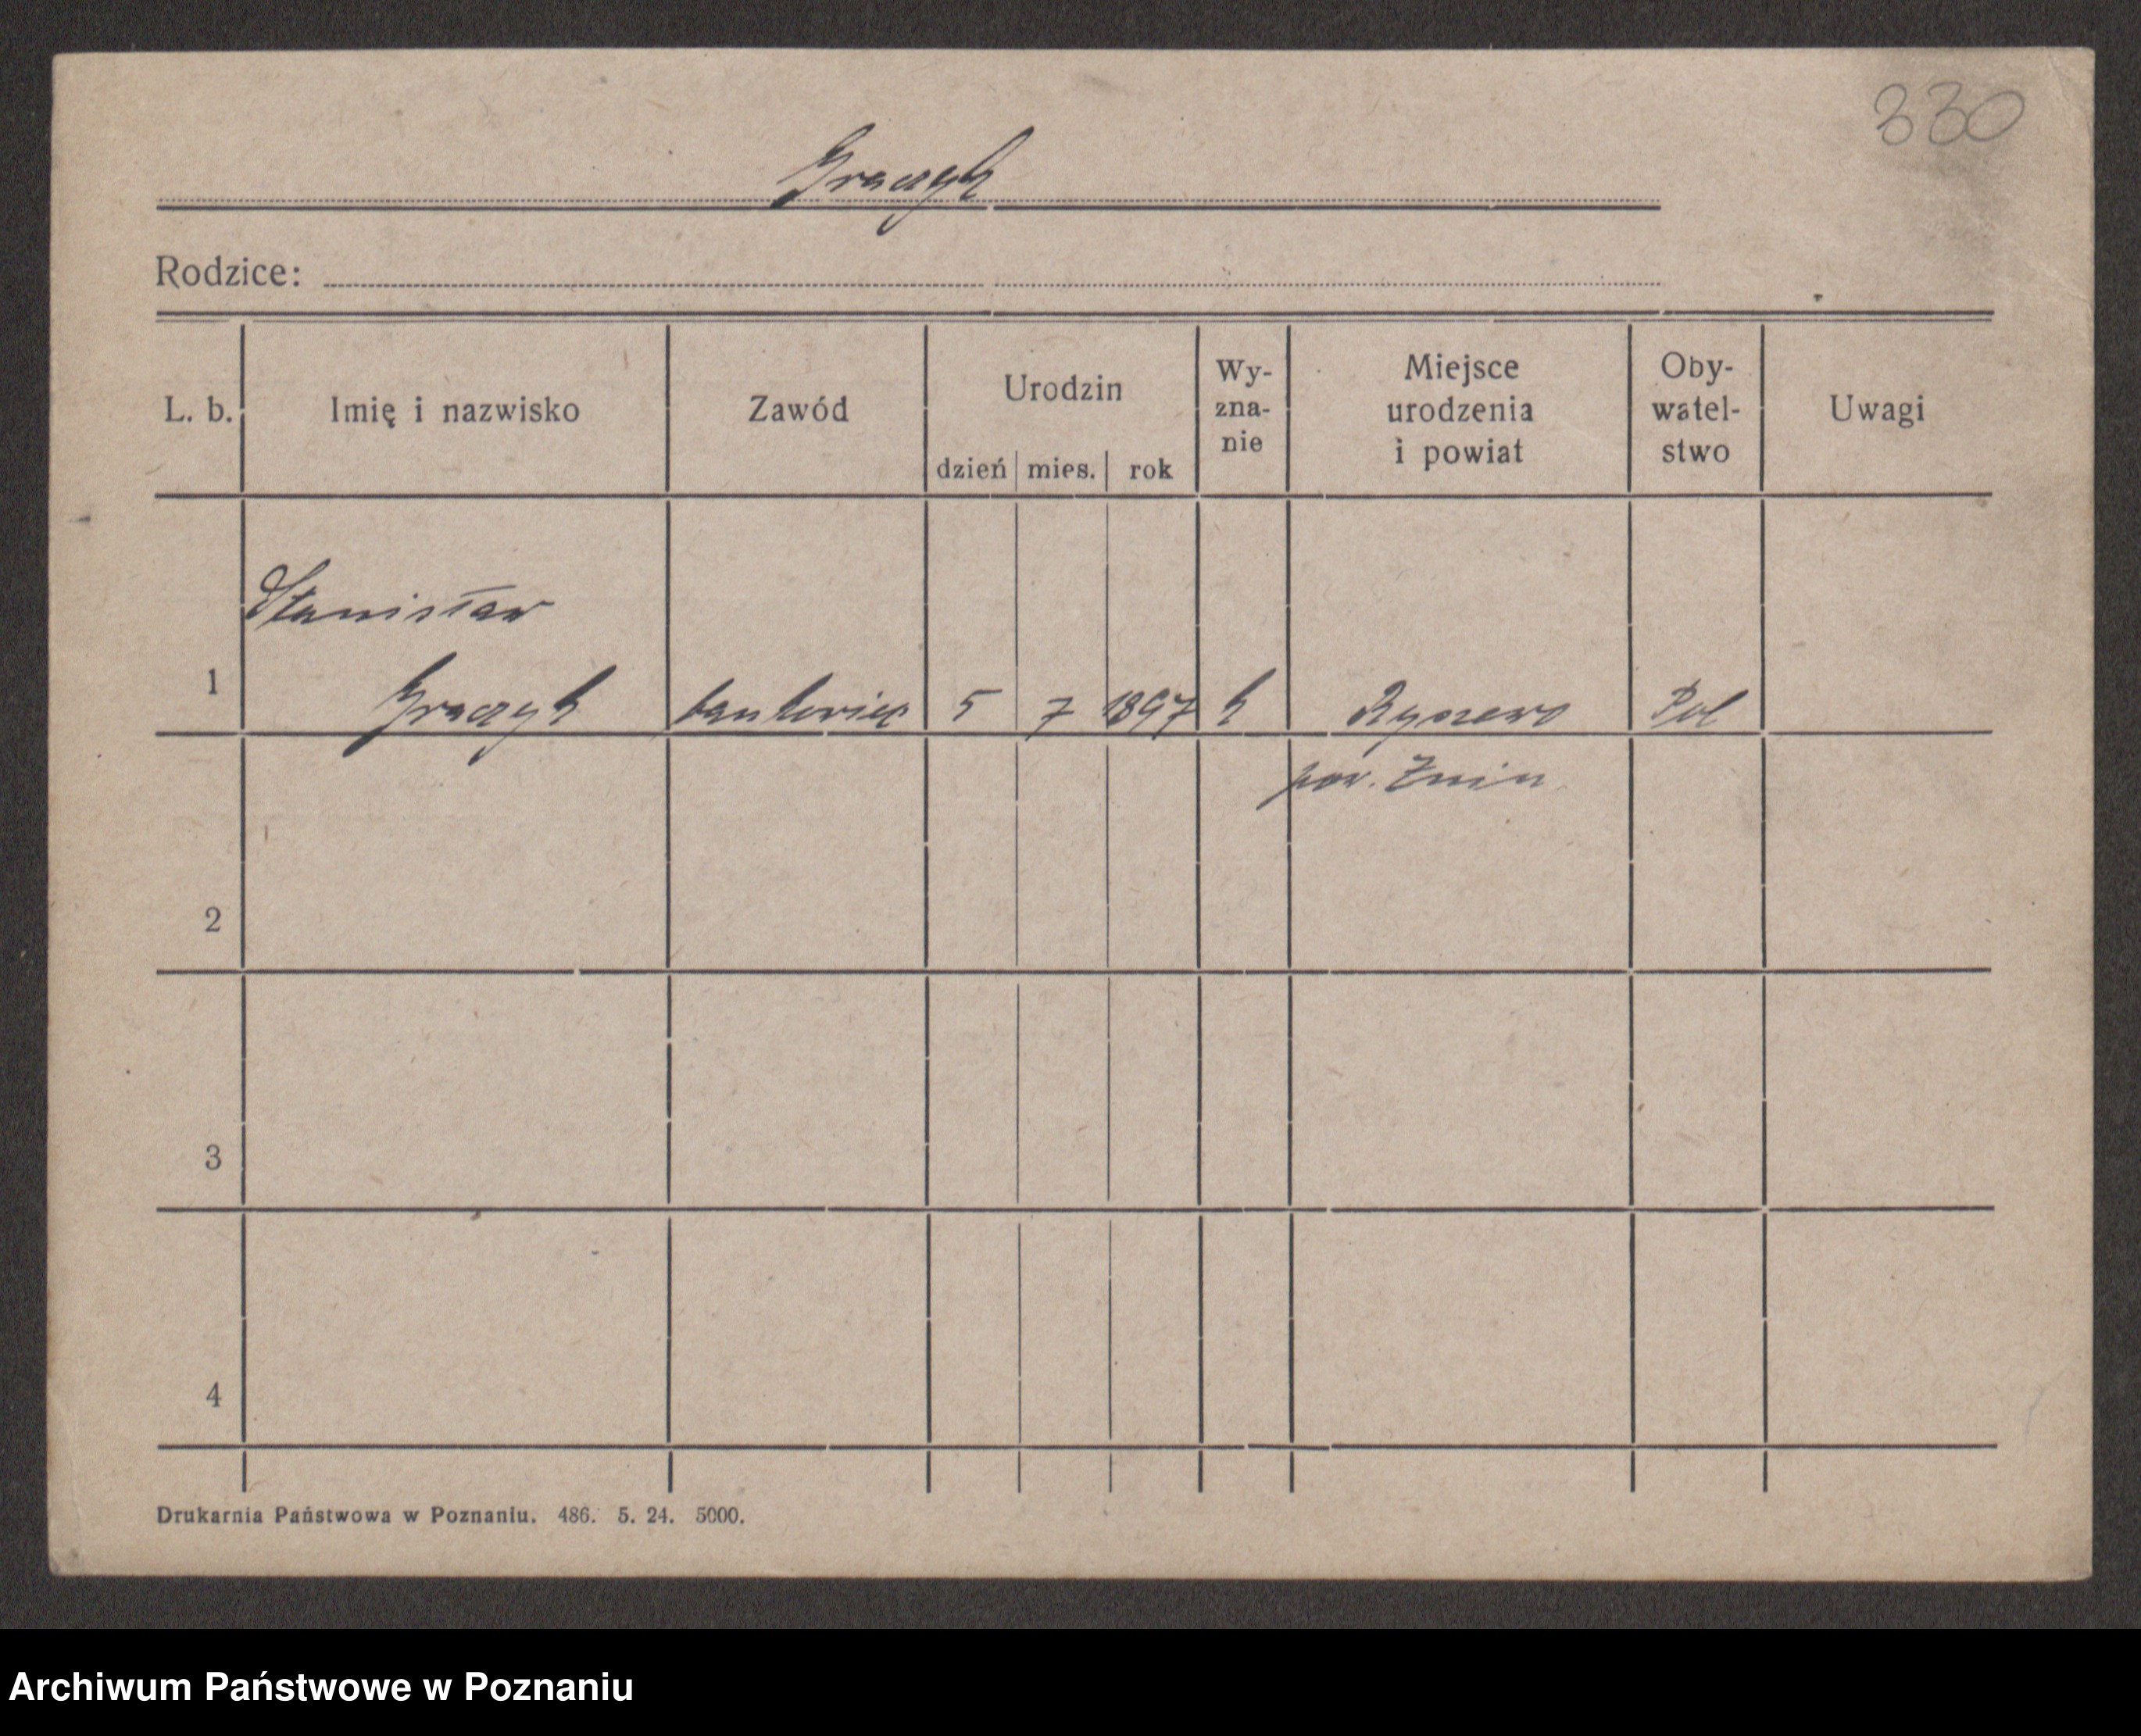 330
Graczyk
Rodzice:
L. b. Imię i nazwisko Zawód Urodzin dzień mies. rok Wy-zna-nie Miejsce urodzenia i powiat Oby-watel-stwo Uwagi
Stanisław
1 Graczyk bankowiec 5 7 1897 k Ryszewo Pol
pow. Żnin
2
3
4
Drukarnia Państwowa w Poznaniu. 486. 5. 24. 5000.
Archiwum Państwowe w Poznaniu